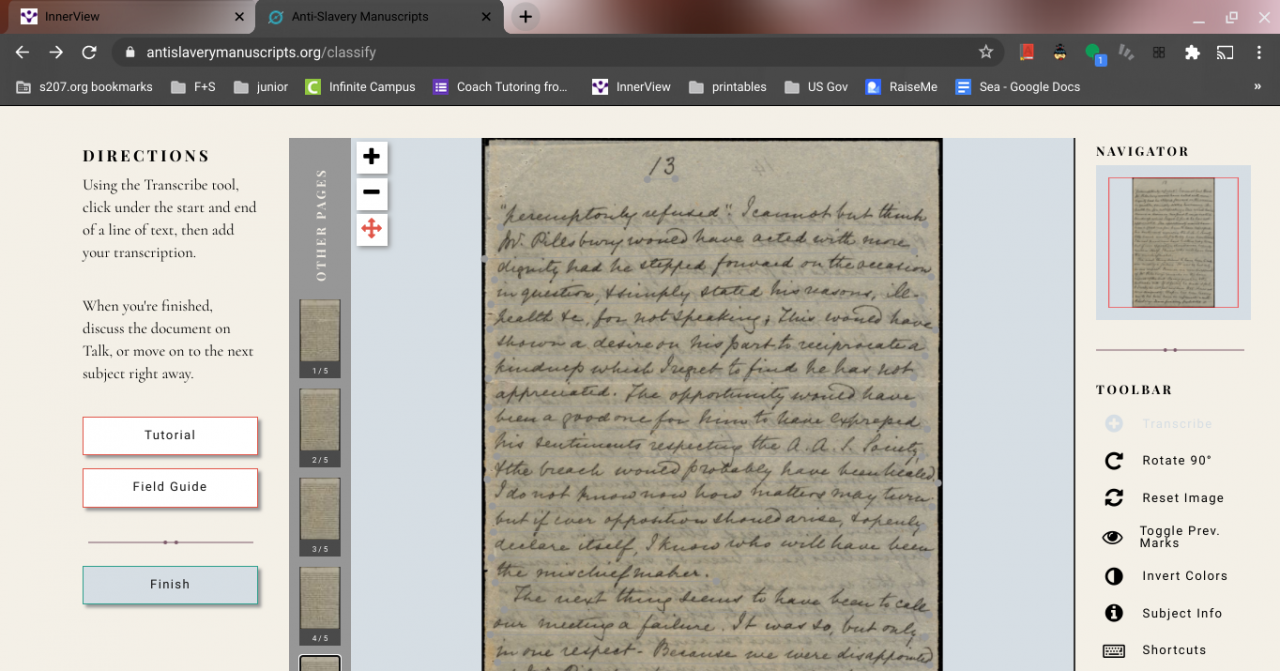 InnerView
Anti-Slavery Manuscripts
antislaverymanuscripts.org/classify
1
s207.org bookmarks
F+S
junior
Infinite Campus
Coach Tutoring fro...
InnerView
printables
US Gov
RaiseMe
Sea - Google Docs
»
DIRECTIONS
Using the Transcribe tool,
click under the start and end
of a line of text, then add
your transcription.
When you're finished,
discuss the document on
Talk, or move on to the next
subject right away.
Tutorial
Field Guide
Finish
OTHER PAGES
1 / 5
2 / 5
3 / 5
4 / 5
13
"peremptorily refused". I cannot but think
Mr. Pillsbury would have acted with more
dignity had he stepped forward on the occasion
in question, & simply stated his reasons, ill-
health &c, for not speaking; This would have
shown a desire on his part to reciprocate a
kindness which I regret to find he has not
appreciated. The opportunity would have
been a good one for him to have expressed
his sentiments respecting the A. A. S. Society,
& the breach would probably have been healed
I do not know now how matters may turn
but if ever opposition should arise, & openly
declare itself, I know who will have been
the mischief maker.
The next thing seems to have been to call
our meeting a failure. It was so, but only
in one respect - Because we were disappointed
NAVIGATOR
TOOLBAR
Transcribe
Rotate 90°
Reset Image
Toggle Prev.
Marks
Invert Colors
Subject Info
Shortcuts